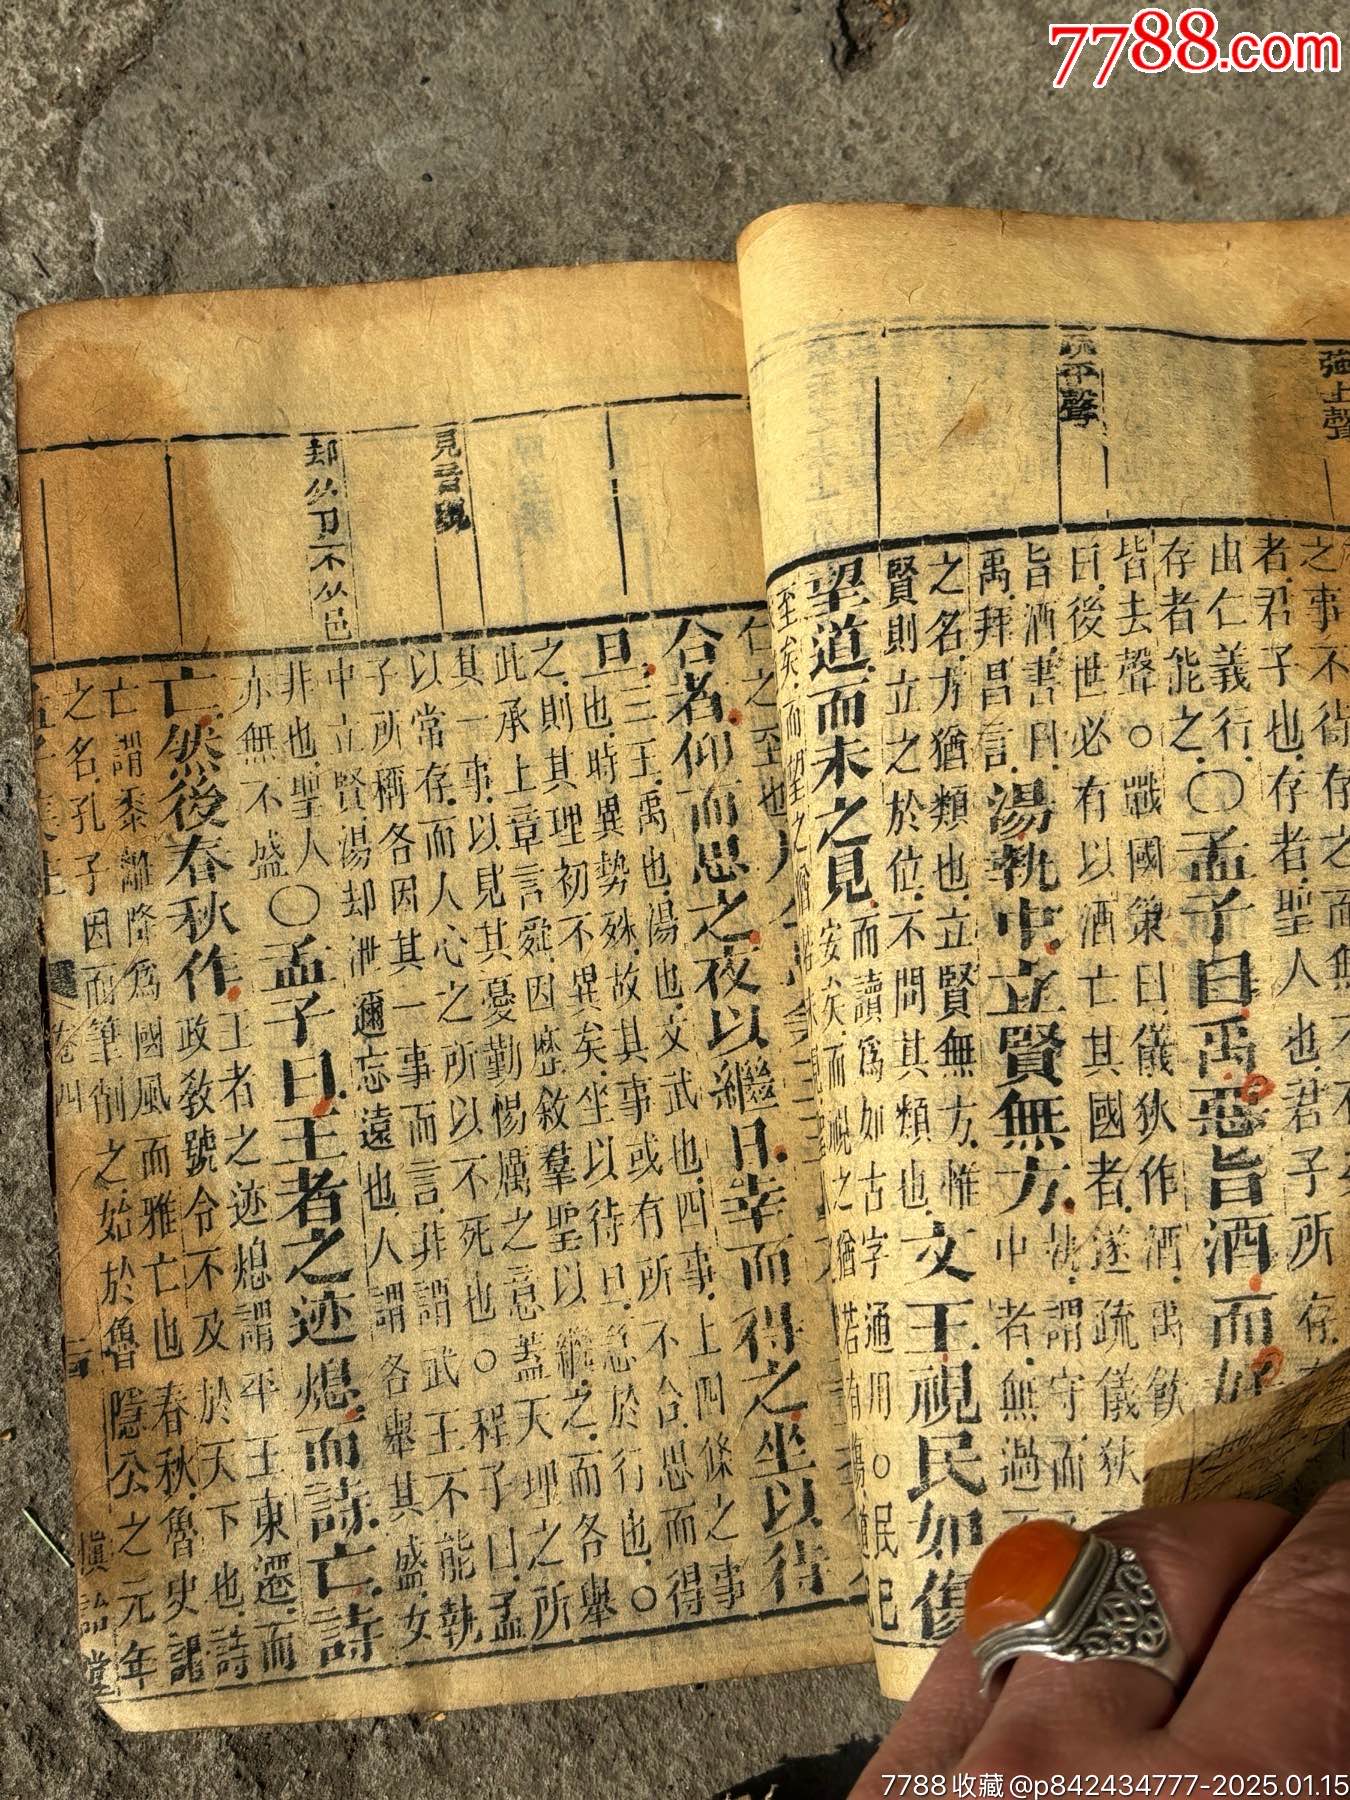 7788.com
強上聲
疏平聲
之事不待存之而無不
者君子也存者聖人也君子所存
存者能之
由仁義行〇孟子曰禹惡旨酒而好
皆去聲○戰國策曰儀狄作酒禹飲
曰後世必有以酒亡其國者遂疏儀狄
旨酒書曰
禹拜昌言湯執中立賢無方執謂守而
中者無過
之名方猶類也立賢無方惟
賢則立之於位不問其類也文王視民如傷
望道而未之見而讀爲如古字通用○民已
安矣而視之猶若有傷道已
至矣而望之猶若未見
見音現
却从刀不从邑
仁之至也
合者仰而思之夜以繼日幸而得之坐以待
旦三王禹也湯也文武也四事上四條之事
也時異勢殊故其事或有所不合思而得
之則其理初不異矣坐以待旦急於行也○
此承上章言舜因歷敘羣聖以繼之而各舉
其一事以見其憂勤惕厲之意蓋天理之所
以常存而人心之所以不死也○程子曰孟
子所稱各因其一事而言非謂武王不能執
中立賢湯却泄邇忘遠也人謂各舉其盛女
非也聖人
亦無不盛〇孟子曰王者之迹熄而詩亡詩
亡然後春秋作王者之迹熄謂平王東遷而
政敎號令不及於天下也詩
亡謂黍離降爲國風而雅亡也春秋魯史記
之名孔子因而筆削之始於魯隱公之元年
卷四
慎詒堂
7788收藏@p842434777-2025.01.15